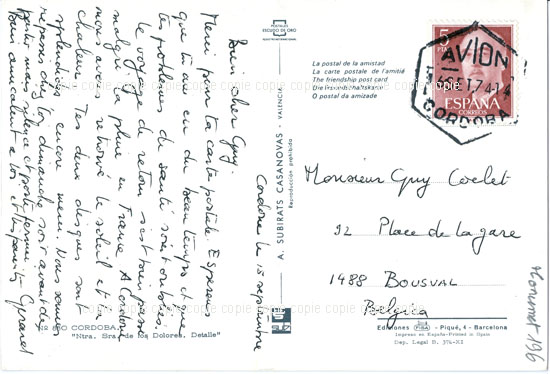 Cordoue le 15 septembre
Bien cher Guy,
Merci pour ta carte postale. Espérons
que tu as eu du beau temps et que
tes problèmes de santé sont oubliés.
Le voyage de retour s'est bien passé
malgré la pluie en France. A Cordoue
nous avons retrouvé le soleil et la
chaleur. Tes deux disques sont
splendides encore merci. Nous sommes
dimanche soir avant de
Gérard
Nº 860 CORDOBA.
"Ntra. Sra. de los Dolores. Detalle"
POSTALES
ESCUDO DE ORO
A. SUBIRATS CASANOVAS - VALENCIA
Reproducción prohibida
La postal de la amistad
La carte postale de l'amitié
The friendship post card
Die freundschaftskarte
O postal da amizade
5
PTAS
ESPAÑA
CORREOS
AVION
CORDOBA
Monsieur Guy Coelet
32 Place de la gare
1488 BOUSVAL
Belgica
Monument 196
Ediciones FISA - Piqué, 4 - Barcelona
Impreso en España-Printed in Spain
Dep. Legal B. 374-XI
copie copie copie copie copie copie copie copie